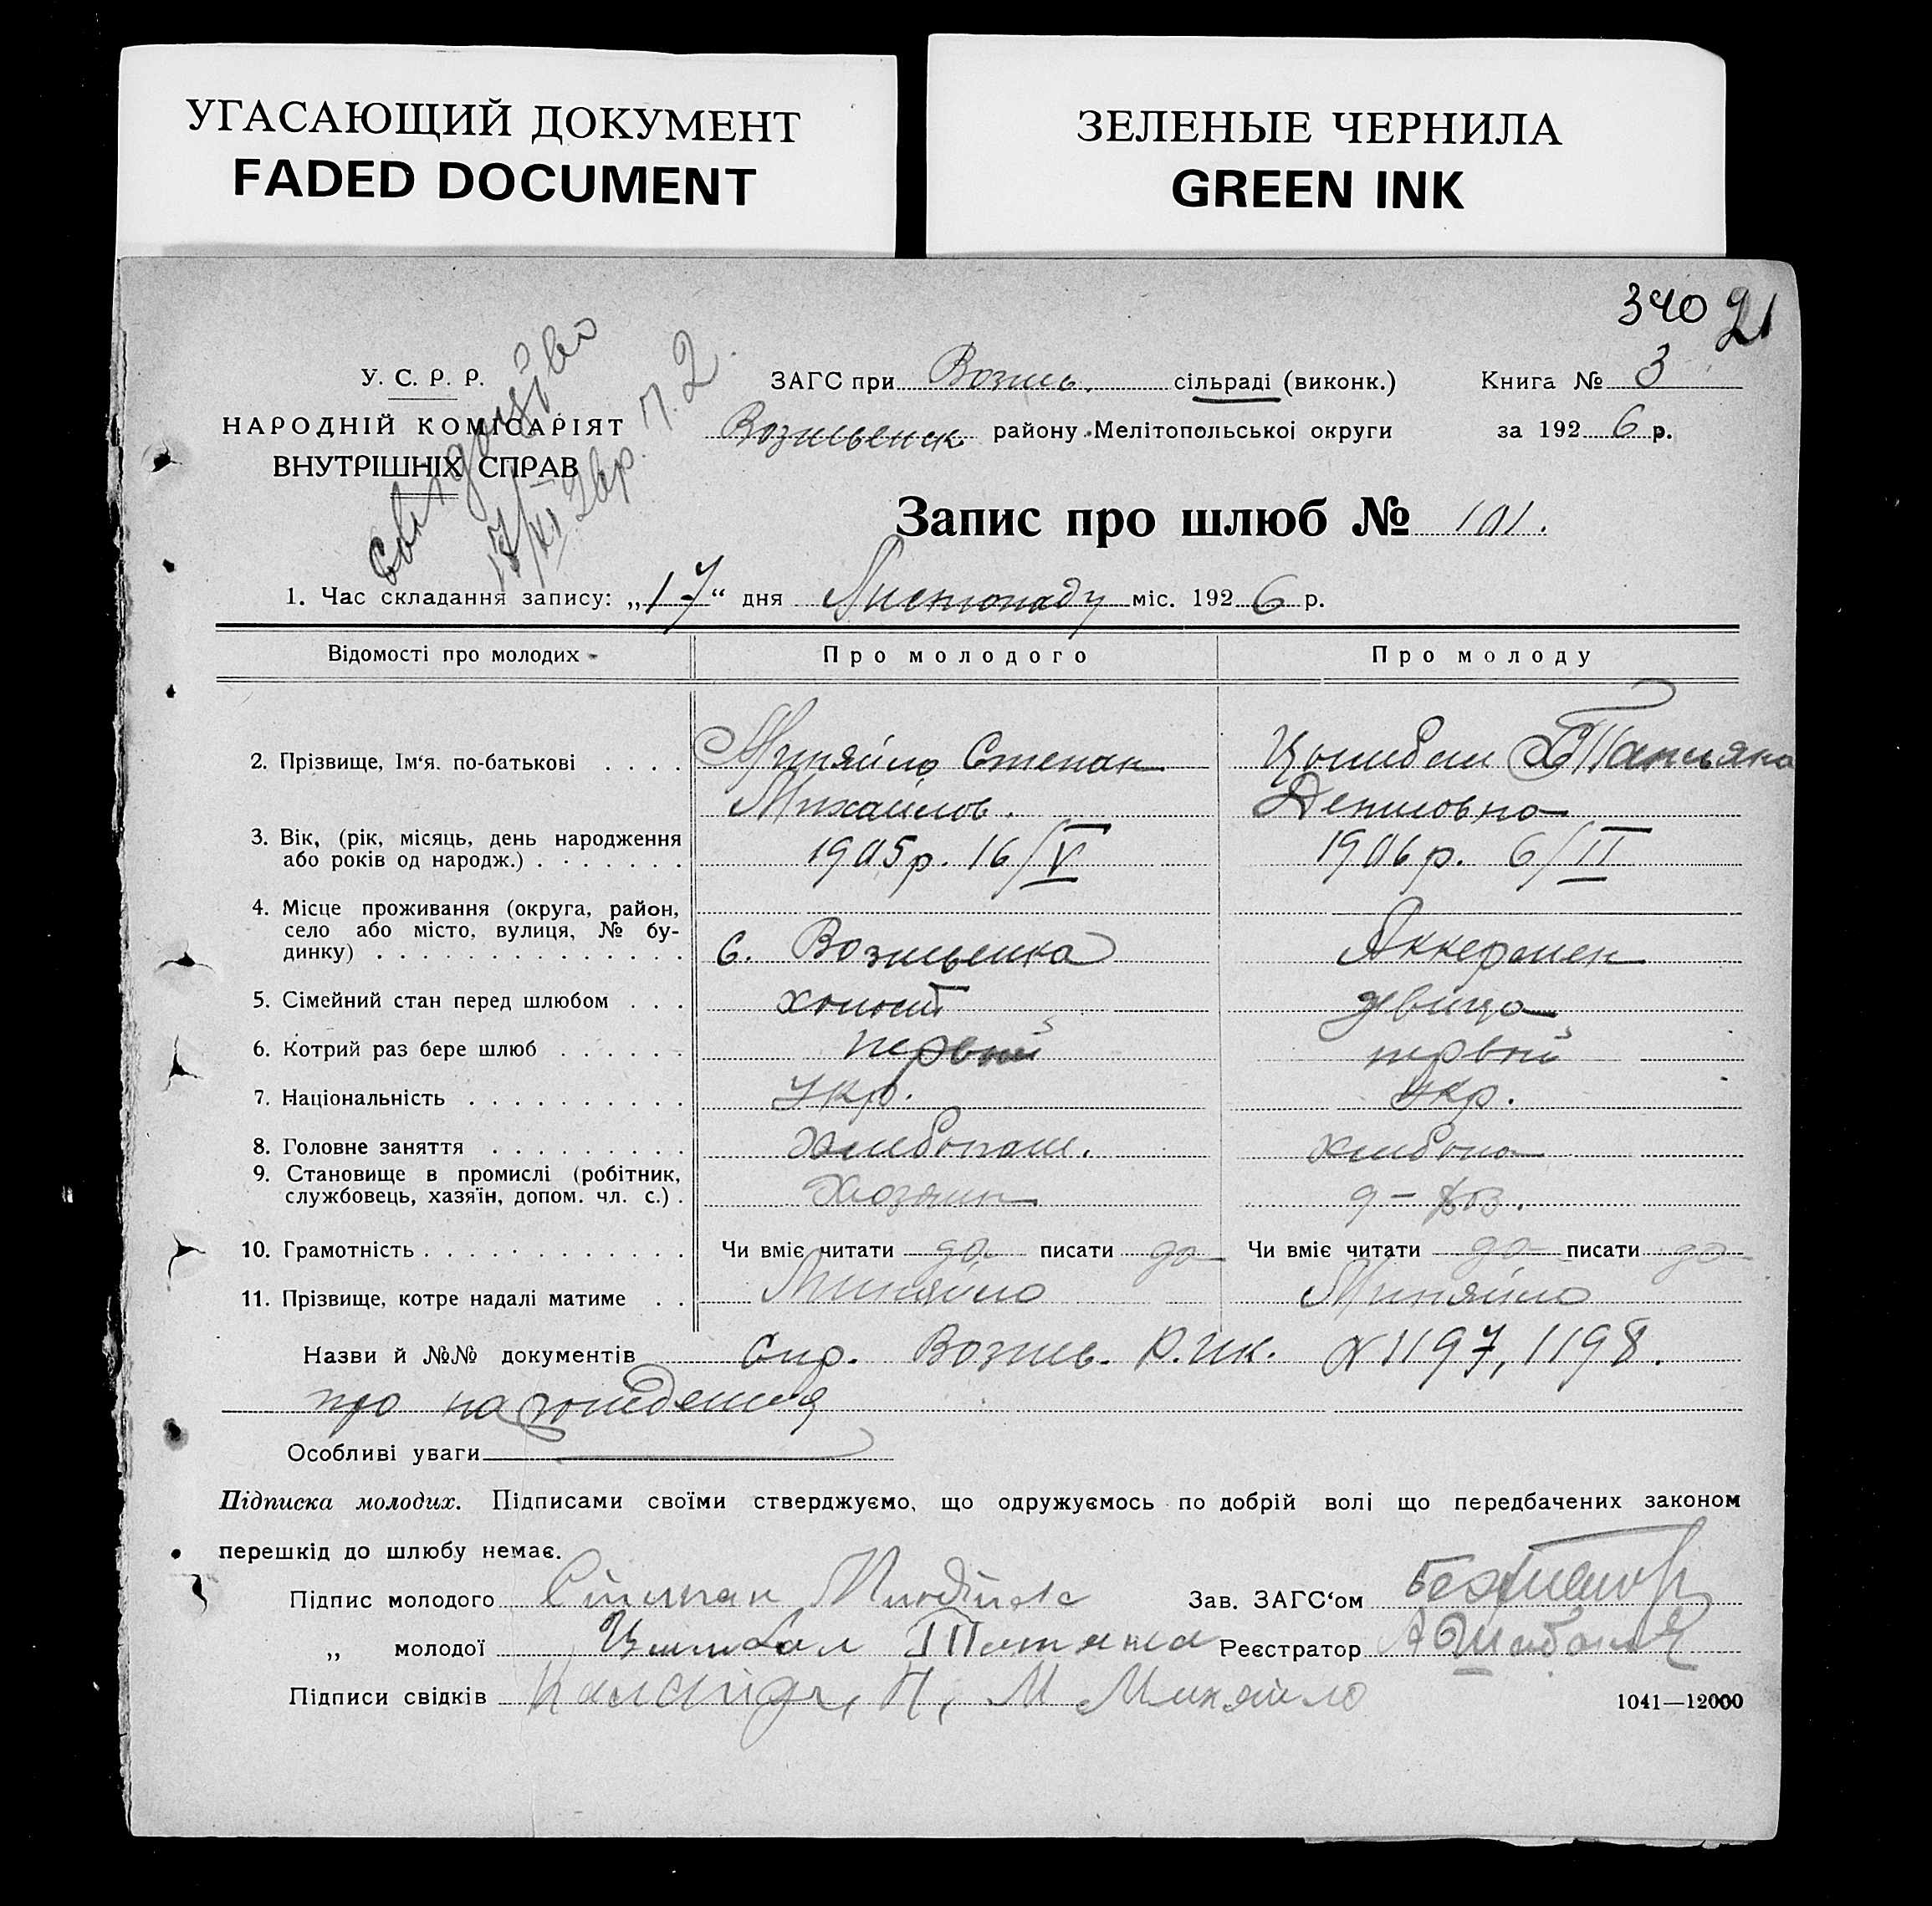 УГАСАЮЩИЙ ДОКУМЕНТ
FADED DOCUMENT
ЗЕЛЕНЫЕ ЧЕРНИЛА
GREEN INK
340 21
У. С. Р. Р.
НАРОДНІЙ КОМІСАРІЯТ
ВНУТРІШНІХ СПРАВ
17/XI 26р. п. 2.
ЗАГС при Вознес. сільраді (виконк.) Книга № 3
району Мелітопольської округи за 1926 р.
Запис про шлюб № 101.
1. Час складання запису: „17“ дня Листопаду міс. 1926 р.
Відомості про молодих Про молодого Про молоду
2. Прізвище, Ім‘я. по-батькові Миняйло Степан Цымбал Татьяна
Михайлов. Денисовна
3. Вік, (рік, місяць, день народження
або років од народж.) 1905 р. 16/V 1906 р. 6/II
4. Місце проживання (округа, район,
село або місто, вулиця, № бу-
динку) с. Аккермен
5. Сімейний стан перед шлюбом холост девица
6. Котрий раз бере шлюб первый первый
7. Національність Укр. Укр.
8. Головне заняття хлибопаш.
9. Становище в промислі (робітник,
службовець, хазяїн, допом. чл. с.) Хозяин
10. Грамотність Чи вміє читати да писати да Чи вміє читати да писати да
11. Прізвище, котре надалі матиме Миняйло Миняйло
Назви й №№ документів Спр. Вознес. Р.И.К. № 1197, 1198.
про народження
Особливі уваги
Підписка молодих. Підписами своїми стверджуємо, що одружуємось по добрій волі що передбачених законом
перешкід до шлюбу немає.
Підпис молодого Степан Зав. ЗАГС‘ом
„ молодої Цымбал Татяна Реєстратор
Підписи свідків П, М Миняйло 1041—12000